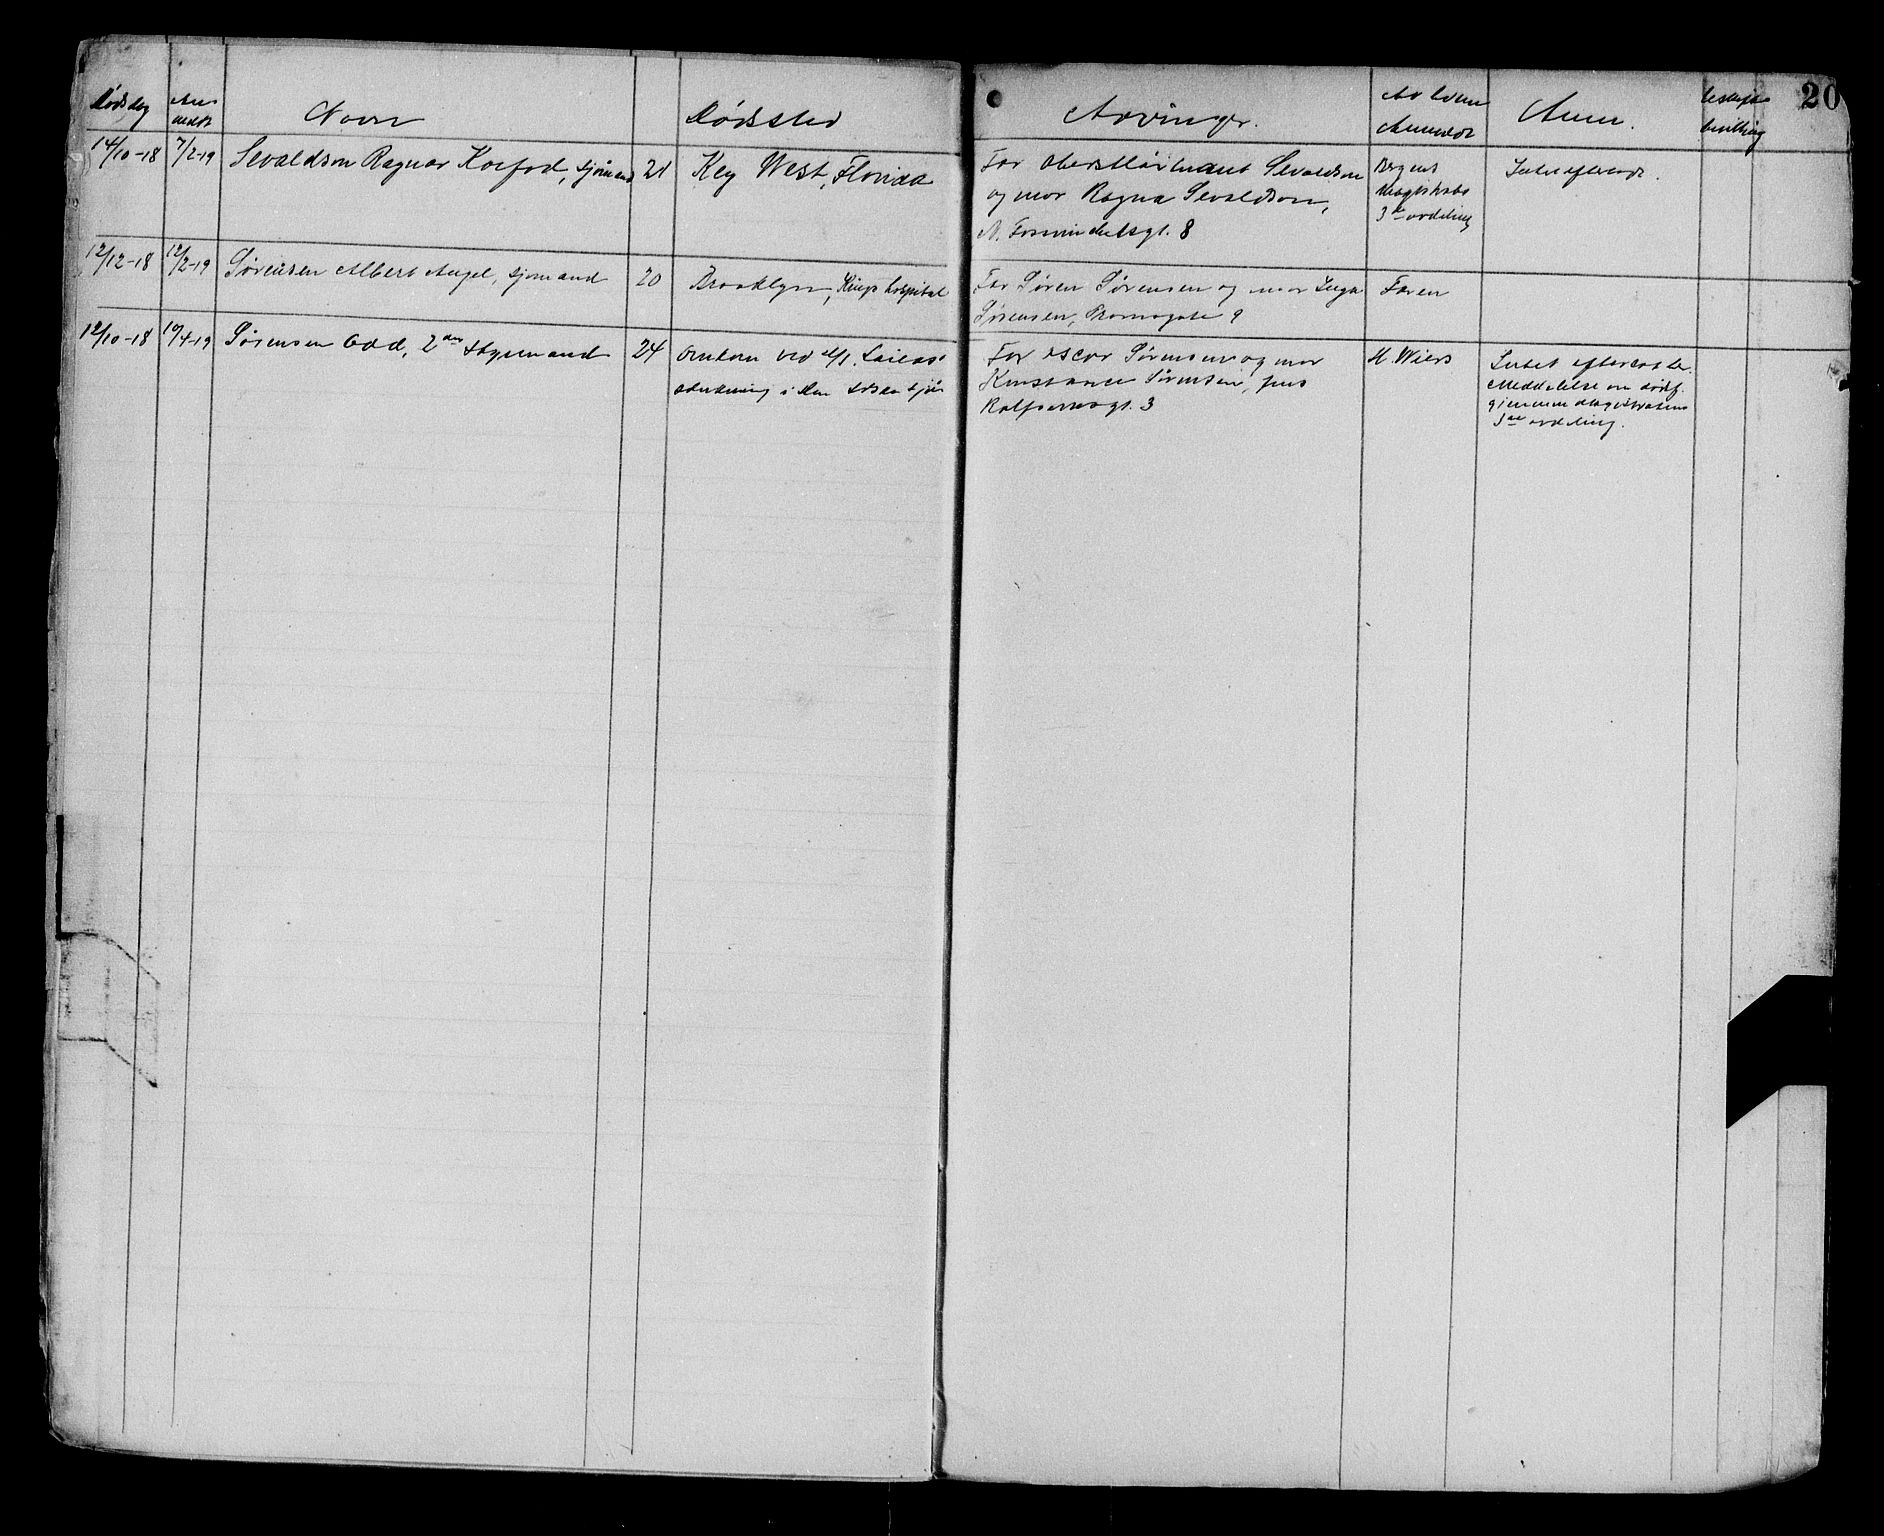 Dødsdag An- meldt Navn Dødssted Arvinger. Av hvem Anmeldt Anm. 20
14/10-18 7/2-19 Sevaldson Ragnar Koefod, sjømand 21 Key West, Florida
Far oberstløitnant Sevaldson
og mor Ragna Sevaldson,
N. Forswindelsgt. 8
Bergens
Magistrats
3die avdeling
Intet efterladt.
12/12-18 12/2-19 Sørensen Albert Angel, sjømand 20 Brooklyn, Kings hospital
Far Søren Sørensen og mor Inga
Sørensen, gate 9
Faren
12/10-18 10/4-19 Sørensen Odd, 2den styrmand 24 omkom ved d/s.
sænkning i den sjø
Far Oscar Sørensen og mor
Konstance Sørensen,
Rolfsensgt. 3
H. Wiers
Intet efterladt.
Meddelelse om dødsf.
gjennem Magistratens
3die avdeling.